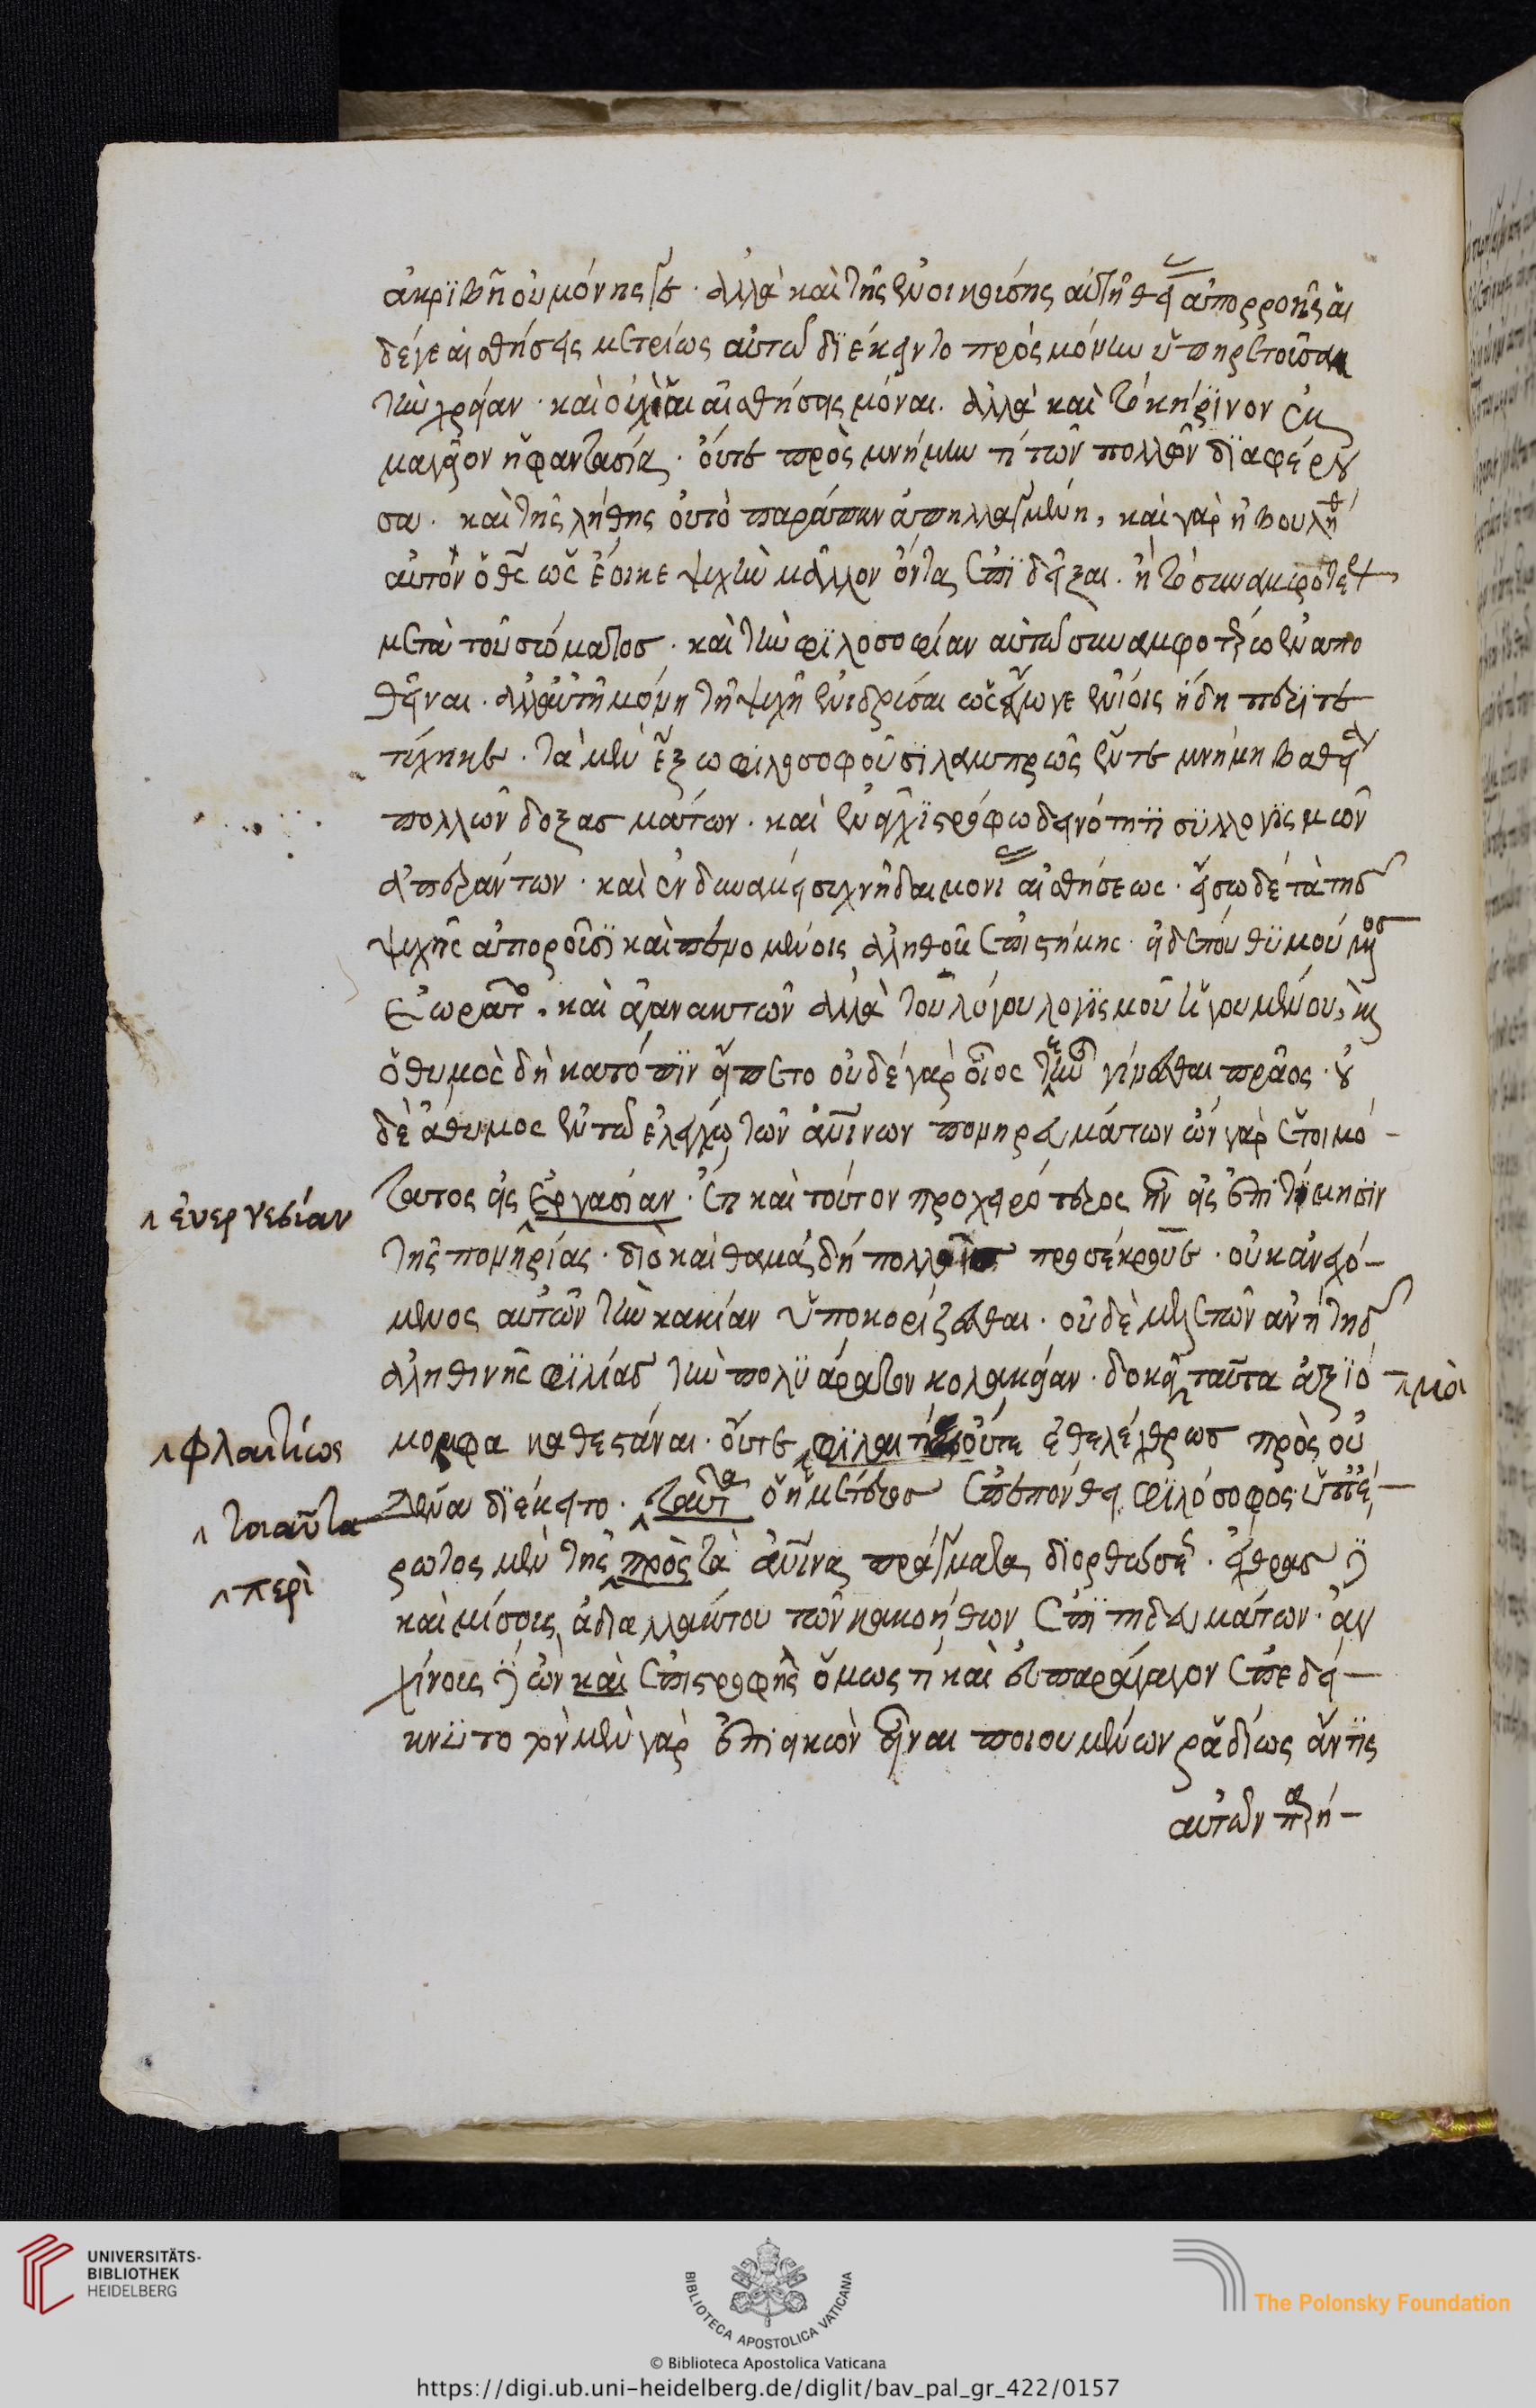 ἀκριβῆ οὐ μόνης γε. ἀλλὰ καὶ τῆς ἐνοικιθείσης αὐτῇ θεί ἀπορροῆς αἱ
δέ γε αἰσθήσεις μετρίως αὐτῷ διέκειντο πρὸς μόνην ὑπηρετοῦσαι
τὴν χρείαν. καὶ οὐχὶ αἱ αἰσθήσεις μόναι. ἀλλὰ καὶ τὸ κήρινον ἐκ
μαγεῖον ἡ φαντασία. οὔτε πρὸς μνήμην τι τῶν πολλῶν διαφέρου
σα. καὶ τῆς λήθης οὐ τὸ παράπαν ἀπηλλαγμένη, καὶ γὰρ ἠβουλήθ
αὐτὸν ὁ θς ὡς ἔοικε ψυχὴν μᾶλλον ὄντα ἐπιδεῖξαι. ἢ τὸ συναμφότερον
μετὰ τοῦ σώματος. καὶ τὴν φιλοσοφίαν αὐτῷ συναμφοτέρῳ ἐναπο
θεῖναι. ἀλλ' αὐτῇ μόνῃ τῇ ψυχῇ ἐνιδρῦσαι ὡς ἔγωγε ἐνίοις ἤδη περιτε
τύχηκα. τὰ μὲν ἔξω φιλοσοφοῦσι λαμπρῶς ἔν τε μνήμῃ βαθείᾳ
πολλῶν δοξασμάτων. καὶ ἐν ἀγχιστρόφῳ δεινότητι συλλογισμῶν
ἀπεράντων. καὶ ἐν δυνάμει συχνῇ δαιμονι αἰσθήσεως. εἴσω δὲ τὰ τῆς
ψυχῆς ἀποροῦσι καὶ πενομένοις ἀληθοῦς ἐπιστήμης. εἶδε του θυμού
ἑωρᾶτο. καὶ ἀγανακτῶν ἀλλὰ τοῦ λόγου λογισμοῦ ἡγουμένου,
ὁ θυμὸς δὴ κατόπιν εἵπετο οὐδὲ γὰρ οἷός τε ἦν γίνεσθαι πρᾶος. οὐ
δὲ ἄθυμος ἐν τῷ ἐλέγχῳ τῶν ἀνίνων πονηρευμάτων ὧν γὰρ ἑτοιμό-
τατος εἰς ἐργασίαν. ἔτι καὶ τούτων προχειρότερος ἦν εἰς ἐπιτίμησιν
τῆς πονηρίας. διὸ καὶ θαμὰ δὴ πολλοῖς προσέκρουε. οὐκ ἀνεχό-
μενος αὐτῶν τὴν κακίαν ὑποκορίζεσθαι. οὐδὲ μετιὼν ἀντὶ τῆς
ἀληθινῆς φιλίας τὴν πολυάρατον κολακείαν. δοκεῖ ταῦτα ἀξιό
μορφα καθεστάναι. οὔτε φιλαιτίως οὔτε ἐθελέχθρως πρὸς οὐ
δένα διέκειτο. ταῦτα ὁ ἡμέτερος ἐπεπόνθει φιλόσοφος ὑπέ-
ρωτος μὲν τῆς πρὸς τὰ ἀνίνα πράγματα διορθώσεως. ἔχθρας
καὶ μίσους ἀδιαλλάκτου τῶν κακοήθων ἐπιτηδευμάτων. ἀγ
χίνους ὢν καὶ ἐπιστροφῆς ὅμως τι καὶ παράγωγον ἐπεδεί-
κνυτο χρὴ μὲν γὰρ ἐπιεικῶν εἶναι ποιουμένων ῥᾳδίως ἄν τις
αὐτῶν πλή-
⸌ εὐεργεσίαν
⸌ φλαιτίως
⸌ τοιαῦτα
⸌ περὶ
UNIVERSITÄTS-
BIBLIOTHEK
HEIDELBERG
BIBLIOTECA APOSTOLICA VATICANA
The Polonsky Foundation
© Biblioteca Apostolica Vaticana
https://digi.ub.uni-heidelberg.de/diglit/bav_pal_gr_422/0157